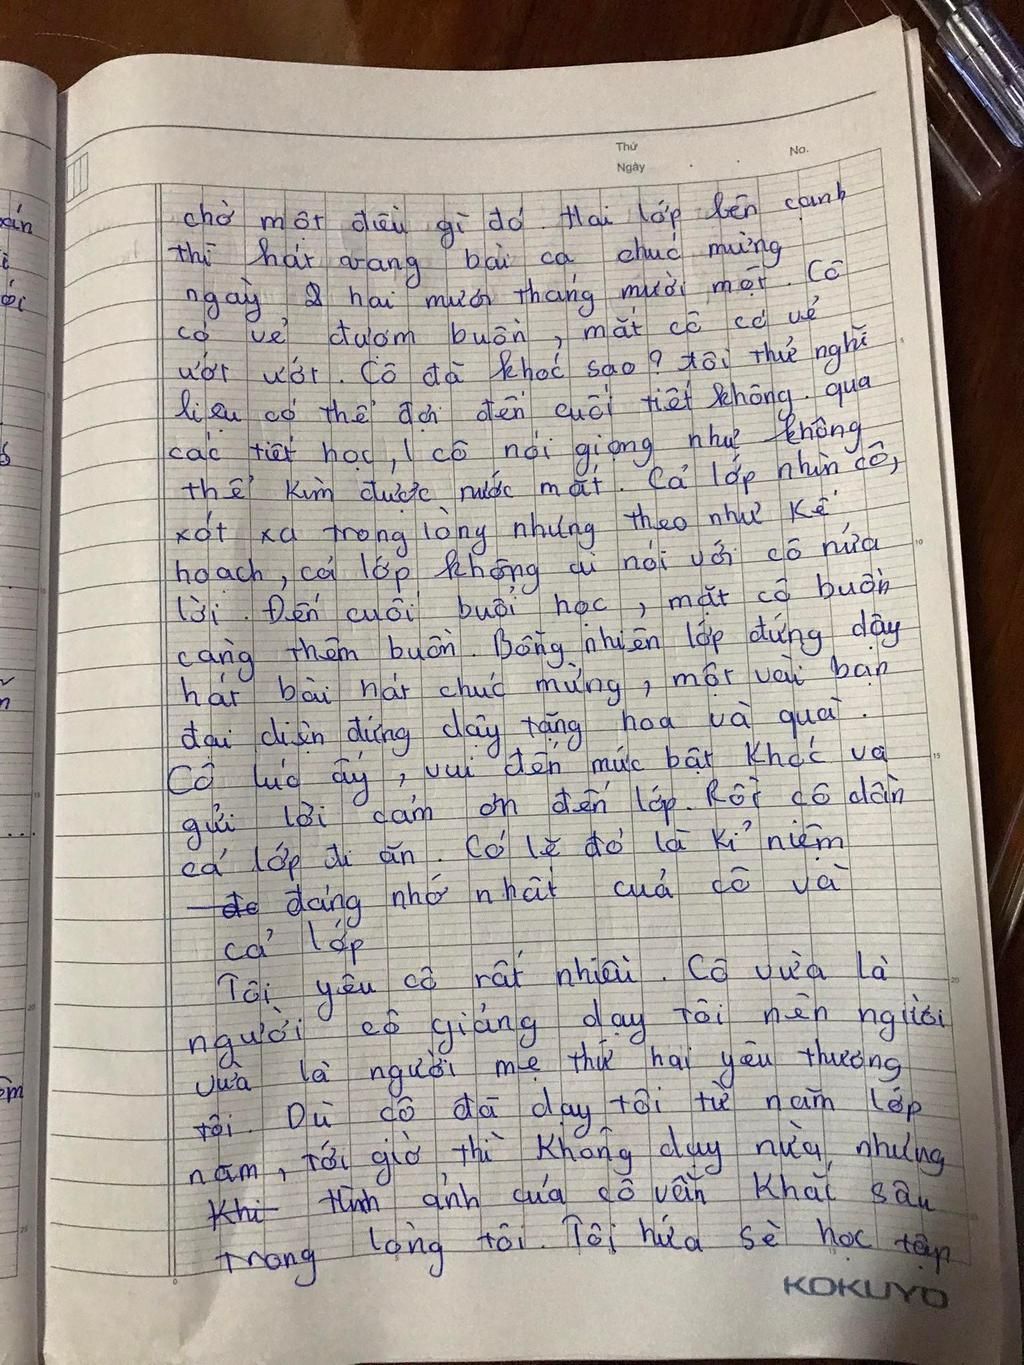 Thứ
Ngày
No.
chờ một điều gì đó. Hai lớp bên cạnh
thì hát vang bài ca chúc mừng
ngày hai mươi tháng mười một. Cô
có vẻ đượm buồn, mắt cô có vẻ
ướt ướt. Cô đã khóc sao? tôi thử nghĩ
liệu có thể đợi đến cuối tiết không. qua
các tiết học, cô nói giọng như không
thể kìm được nước mắt. Cả lớp nhìn cô,
xót xa trong lòng nhưng theo như kế
hoạch, cả lớp không ai nói với cô nửa
lời. Đến cuối buổi học, mặt cô buồn
càng thêm buồn. Bỗng nhiên lớp đứng dậy
hát bài hát chúc mừng, một vài bạn
đại diện đứng dậy tặng hoa và quà.
Cô lúc ấy, vui đến mức bật khóc và
gửi lời cảm ơn đến lớp. Rồi cô dẫn
cả lớp đi ăn. Có lẽ đó là kỉ niệm
đáng nhớ nhất của cô và
cả lớp
Tôi yêu cô rất nhiều. Cô vừa là
người cô giảng dạy tôi nên người
vừa là người mẹ thứ hai yêu thương
tôi. Dù cô đã dạy tôi từ năm lớp
năm, tới giờ thì không dạy nữa, nhưng
khi hình ảnh của cô vẫn khắc sâu
trong lòng tôi. Tôi hứa sẽ học tập
KOKUYO